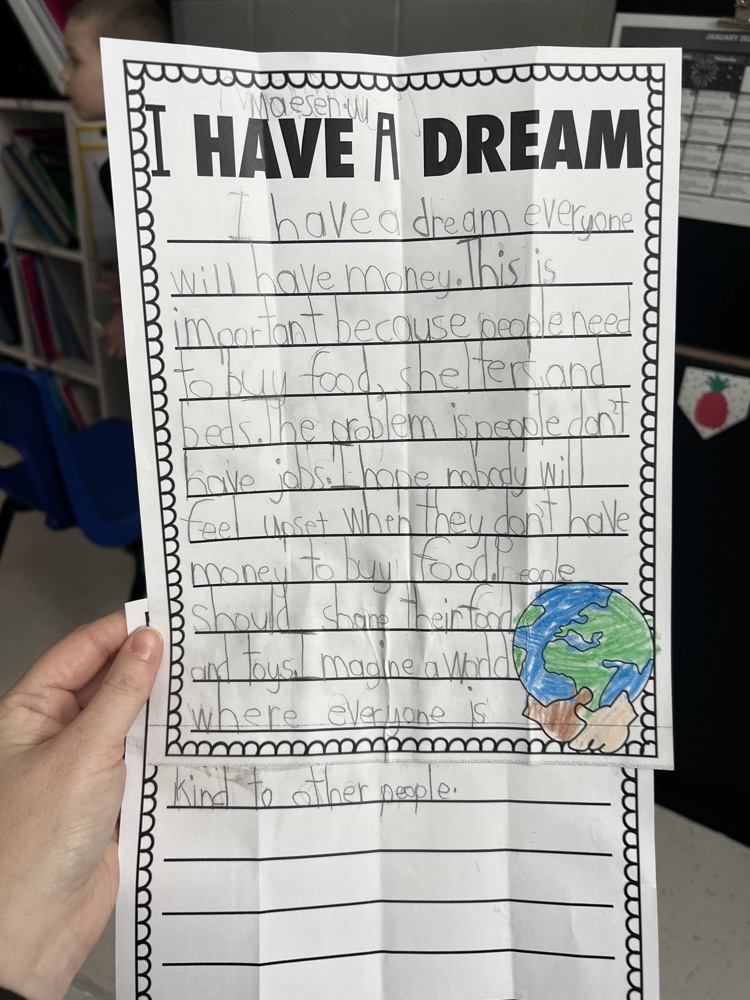 JANUARY
I HAVE A DREAM
I have a dream everyone
will have money. This is
important because people need
to buy food, shelters, and
beds. The problem is people don't
have jobs. I hope nobody will
feel upset when they don't have
money to buy food. People
should share their food
and toys. I magine a world
where everyone is
kind to other people.